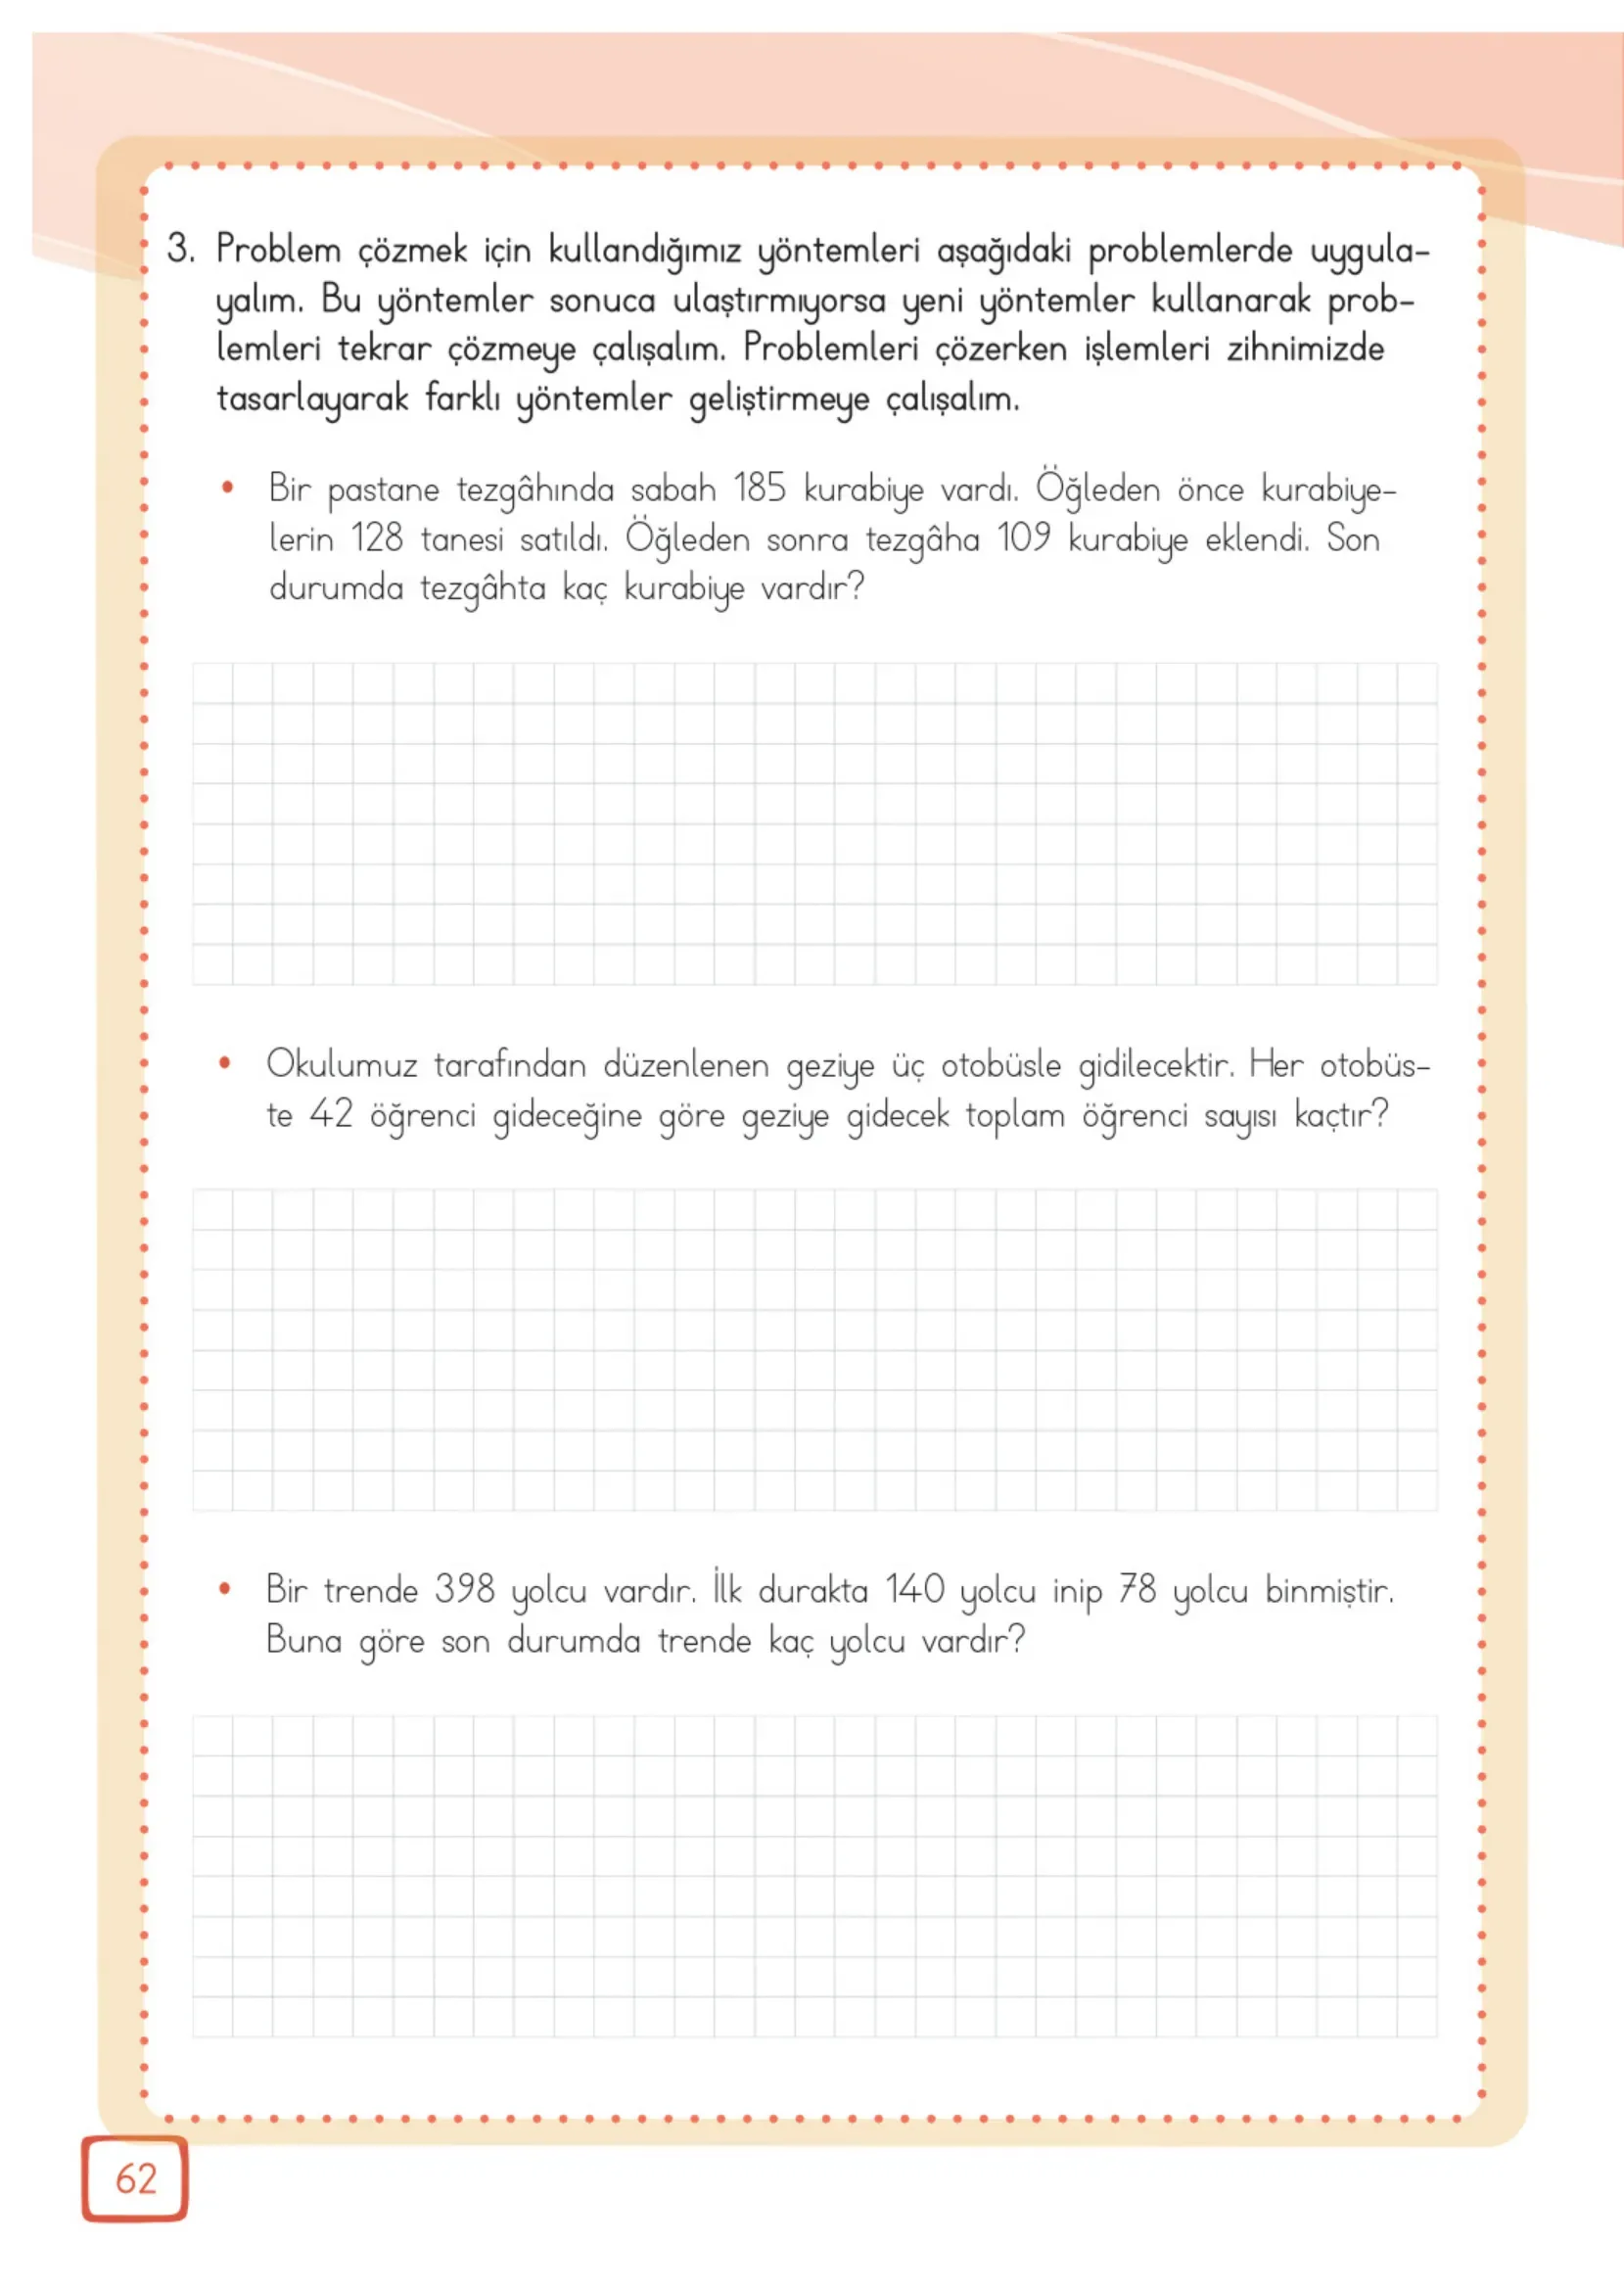 3. Problem çözmek için kullandığımız yöntemleri aşağıdaki problemlerde uygula-
yalım. Bu yöntemler sonuca ulaştırmıyorsa yeni yöntemler kullanarak prob-
lemleri tekrar çözmeye çalışalım. Problemleri çözerken işlemleri zihnimizde
tasarlayarak farklı yöntemler geliştirmeye çalışalım.
• Bir pastane tezgâhında sabah 185 kurabiye vardı. Öğleden önce kurabiye-
lerin 128 tanesi satıldı. Öğleden sonra tezgâha 109 kurabiye eklendi. Son
durumda tezgâhta kaç kurabiye vardır?
• Okulumuz tarafından düzenlenen geziye üç otobüsle gidilecektir. Her otobüs-
te 42 öğrenci gideceğine göre geziye gidecek toplam öğrenci sayısı kaçtır?
• Bir trende 398 yolcu vardır. İlk durakta 140 yolcu inip 78 yolcu binmiştir.
Buna göre son durumda trende kaç yolcu vardır?
62